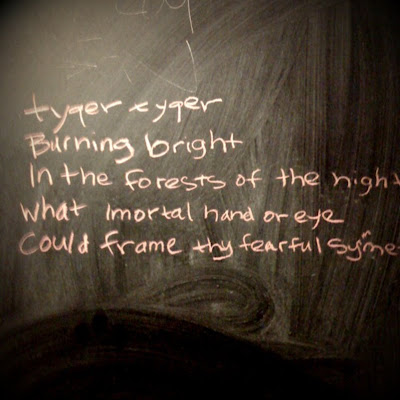 tyger tyger
Burning bright
In the forests of the night
what imortal hand or eye
Could frame thy fearful symme